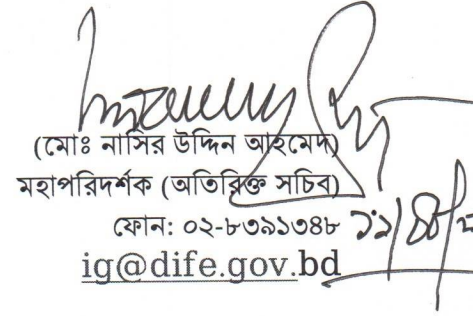 (মোঃ নাসির উদ্দিন আহমেদ)
মহাপরিদর্শক (অতিরিক্ত সচিব)
ফোন: ০২-৮৩৯১৩৪৮
ig@dife.gov.bd